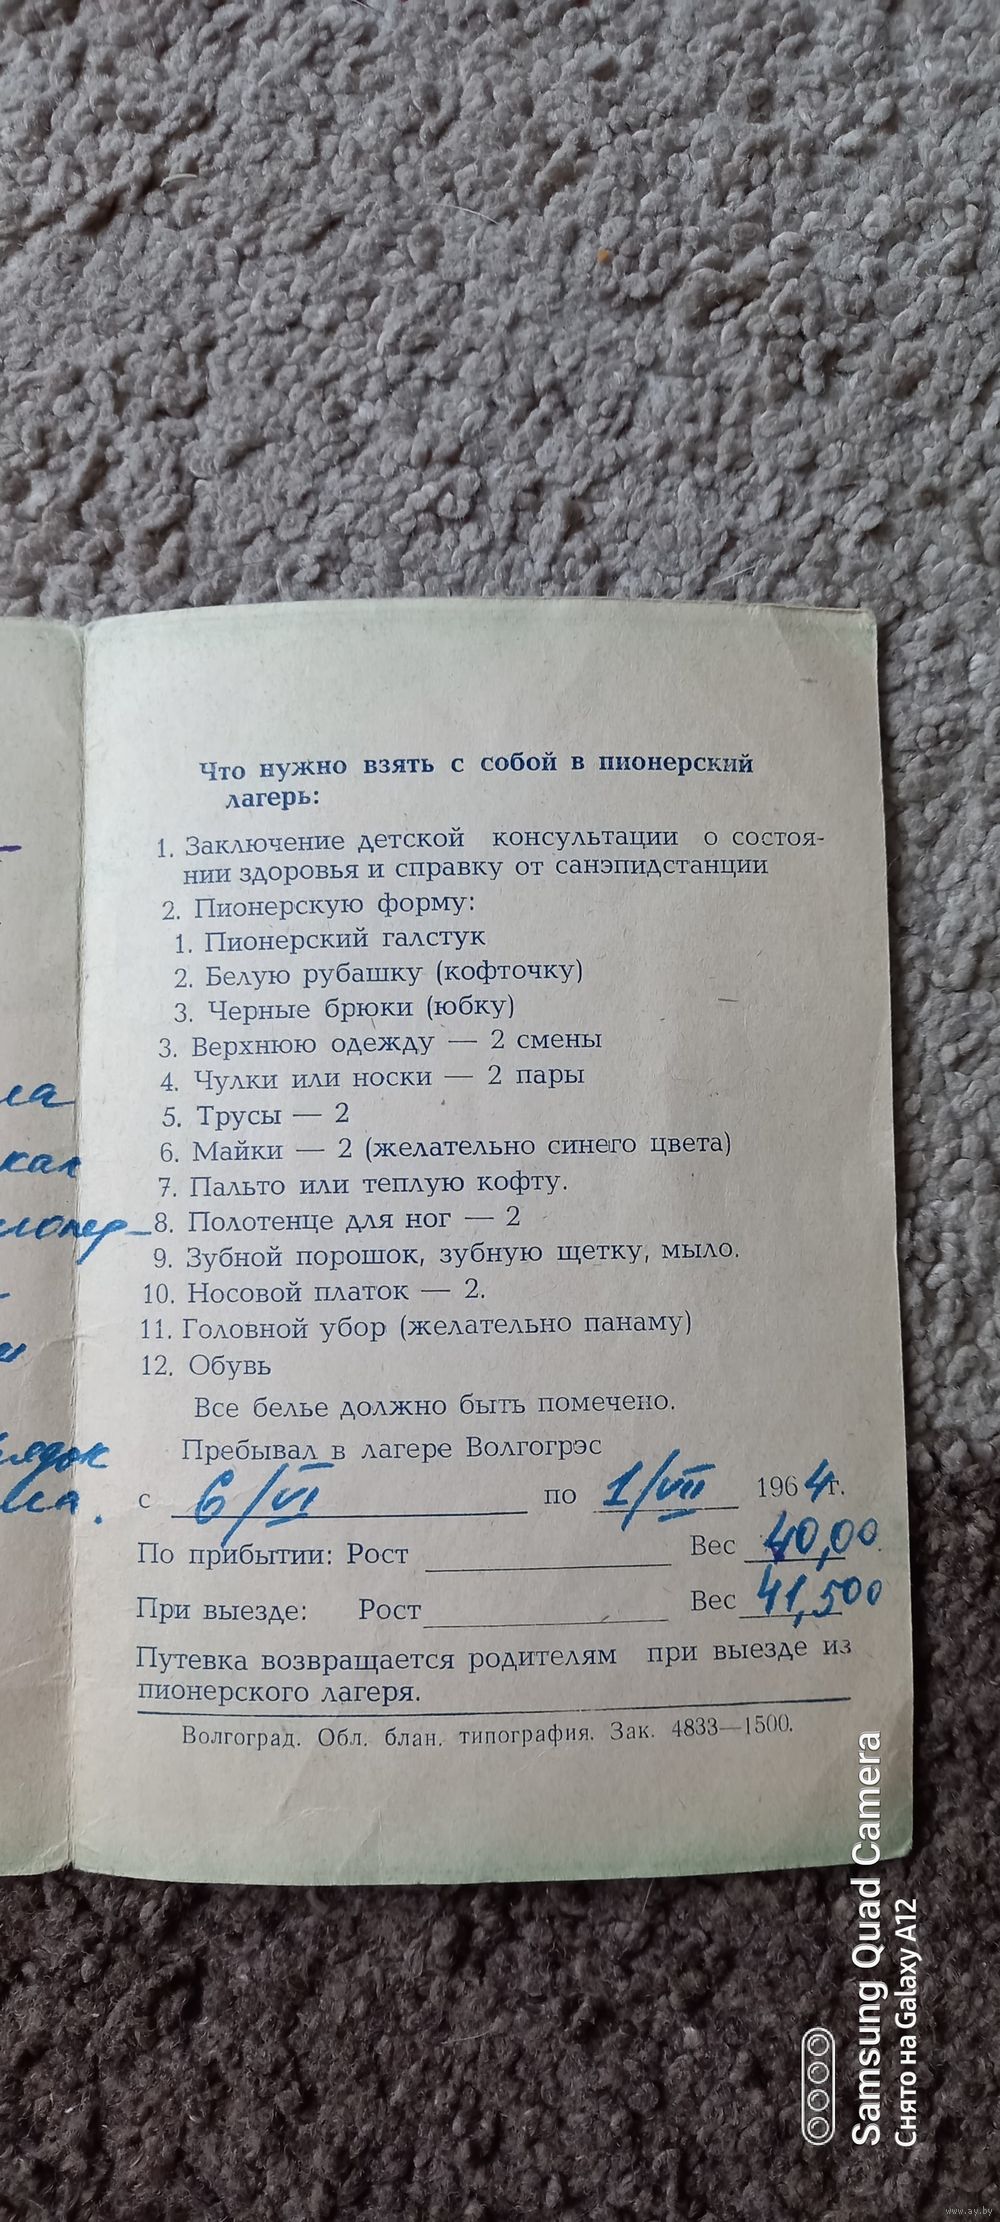 Что нужно взять с собой в пионерский
лагерь:
1. Заключение детской консультации о состоя-
нии здоровья и справку от санэпидстанции
2. Пионерскую форму:
1. Пионерский галстук
2. Белую рубашку (кофточку)
3. Черные брюки (юбку)
3. Верхнюю одежду — 2 смены
4. Чулки или носки — 2 пары
5. Трусы — 2
6. Майки — 2 (желательно синего цвета)
7. Пальто или теплую кофту.
8. Полотенце для ног — 2
9. Зубной порошок, зубную щетку, мыло.
10. Носовой платок — 2.
11. Головной убор (желательно панаму)
12. Обувь
Все белье должно быть помечено.
Пребывал в лагере Волгогрэс
с 6/VI по 1/VII 1964г.
По прибытии: Рост Вес 40,00
При выезде: Рост Вес 41,500
Путевка возвращается родителям при выезде из
пионерского лагеря.
Волгоград. Обл. блан. типография. Зак. 4833—1500.
Samsung Quad Camera
Снято на Galaxy A12
www.ay.by